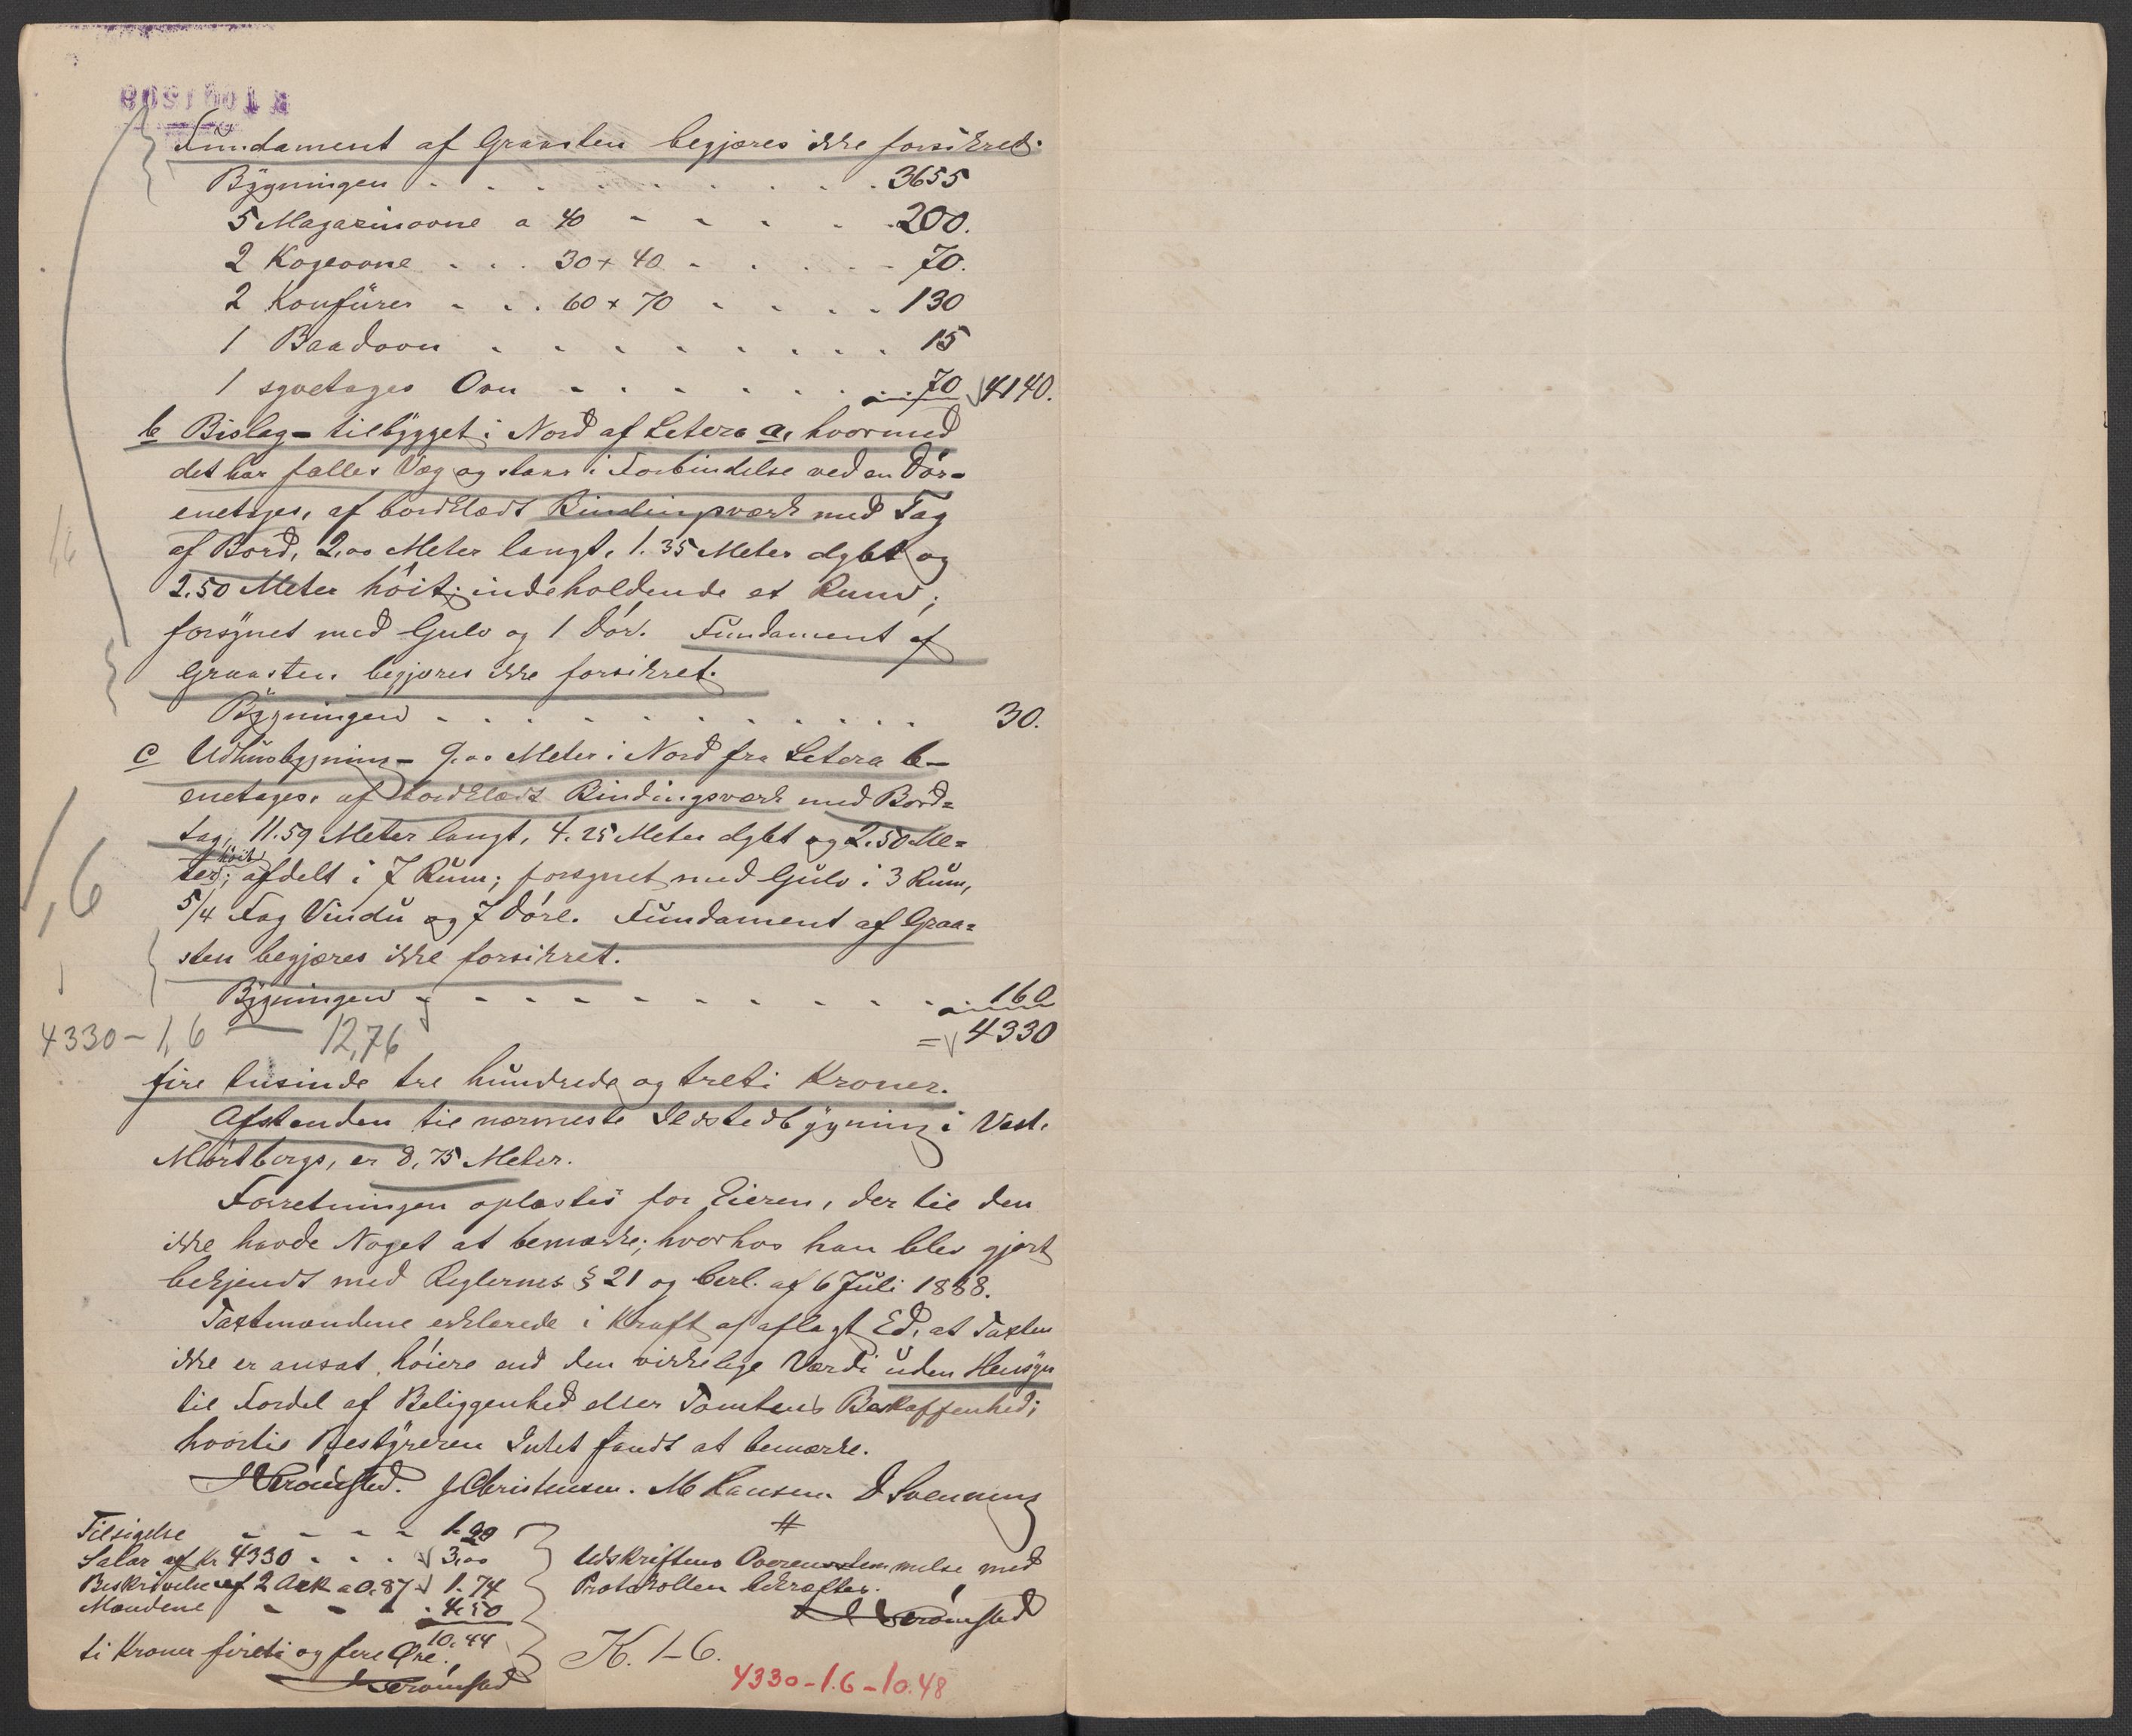 Fundament af Graasten begjæres ikke forsikret.
Bygningen . . . . . . . . . . 3655
5 Magazinovne a 40 - - - - - 200.
2 Kogeovne . . . 30 + 40 - . . . - 70.
2 Komfürer - . . 60 + 70 . . . . 130
1 Baadovn . . . . . . . . . 15
1 syvetages Ovn - . . . . . . . 70 4140.
b Bislag - tilbygget i Nord af Letera a, hvormed
det har fælles Væg og staar i Forbindelse ved en Dör-
enetages, af bordklædt Bindingsværk med Tag
af Bord, 2.00 Meter langt, 1.35 Meter dybt og
2.50 Meter höit; indeholdende et Rum;
forsynet med Gulv og 1 Dör. Fundament af
Graasten begjæres ikke forsikret.
Bygningen - . . . . . . . . . . . 30.
c Udhusbygning - 9.00 Meter i Nord fra Letera b -
enetages, af bordklædt Bindingsværk med Bord=
tag, 11.59 Meter langt, 4.25 Meter dybt og 2.50 Me=
höit
ter; afdelt i 7 Rum; forsynet med Gulv i 3 Rum,
5/4 Fag Vindu og 7 Döre. Fundament af Graa=
sten begjæres ikke forsikret.
1,6
Bygningen - - - - - - - - - - . 160
4330 - 1,6 — 12,76 = 4330
fire tusinde tre hundrede og treti Kroner.
Afstanden til nærmeste Ildstedbygning i Vest,
Mörtbergs, er 8,75 Meter.
Forretningen oplæstes for Eieren, der til den
ikke havde Noget at bemærke; hvorhos han blev gjort
bekjendt med Reglernes § 21 og Cerl. af 6 Juli 1888.
Taxtmændene erklærede i Kraft af aflagt Ed, at Taxten
ikke er ansat höiere end den virkelige Værdi uden Hensyn
til Fordel af Beliggenhed eller Tomtens Beskaffenhed;
hvortil Bestyreren Intet fandt at bemærke.
Strömsted. J Christensen. M Hansen D Svenning
#
Tilsigelse - - - - 1.20
Salær af Kr 4330 . . . 3,00
Beskrivelse af 2 Ark a 0.87 1.74
Mændene - - - . 4.50
10,44
ti Kroner fireti og fire Øre.
Strömsted
Udskriftens Overensstemmelse med
Protokollen bekræftes.
Strömsted
K. 1-6.
4330-1.6-10.48